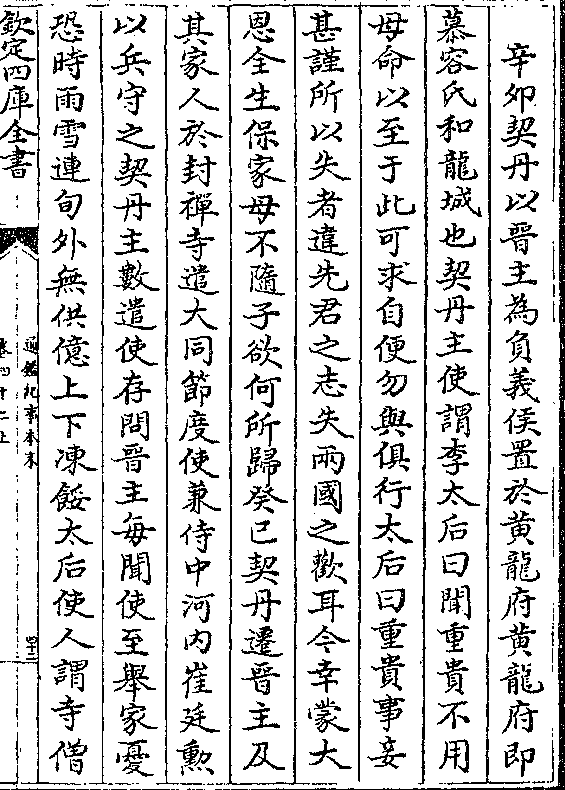 辛卯契丹以晉主為負義侯置於黄龍府黄龍府即
慕容氏和龍城也契丹主使謂李太后曰聞重貴不用
母命以至于此可求自便勿與俱行太后曰重貴事妾
甚謹所以失者違先君之志失兩國之歡耳今幸蒙大
恩全生保家母不隨子欲何所歸癸已契丹遷晉主及
其家人於封禪寺遣大同節度使兼侍中河内崔廷勲
以兵守之契丹主數遣使存問晉主每聞使至舉家憂
恐時雨雪連旬外無供億上下凍餒太后使人謂寺僧
欽定四庫全書
通鑑紀事本末
卷四十二上
四十三